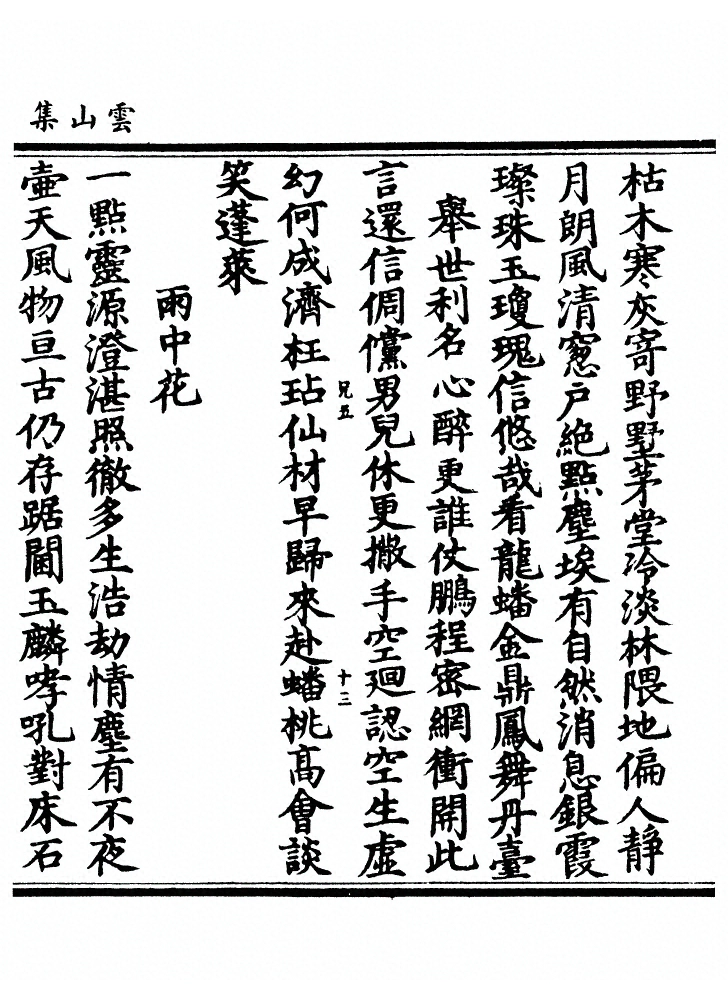 雲山集
枯木寒灰寄野墅茅堂冷淡林隈地偏人靜
月朗風清窻戶絶點塵埃有自然消息銀霞
璨珠玉瓊瑰信悠哉看龍蟠金鼎鳳舞丹臺
舉世利名心醉更誰仗鵬程密網衝開此
言還信倜儻男兒休更撒手空廻認空生虛
兄五
十三
幻何成濟枉玷仙材早歸來赴蟠桃高會談
笑蓬萊
雨中花
一點靈源澄湛照徹多生浩劫情塵有不夜
壷天風物亘古仍存踞閫玉麟哮吼對床石